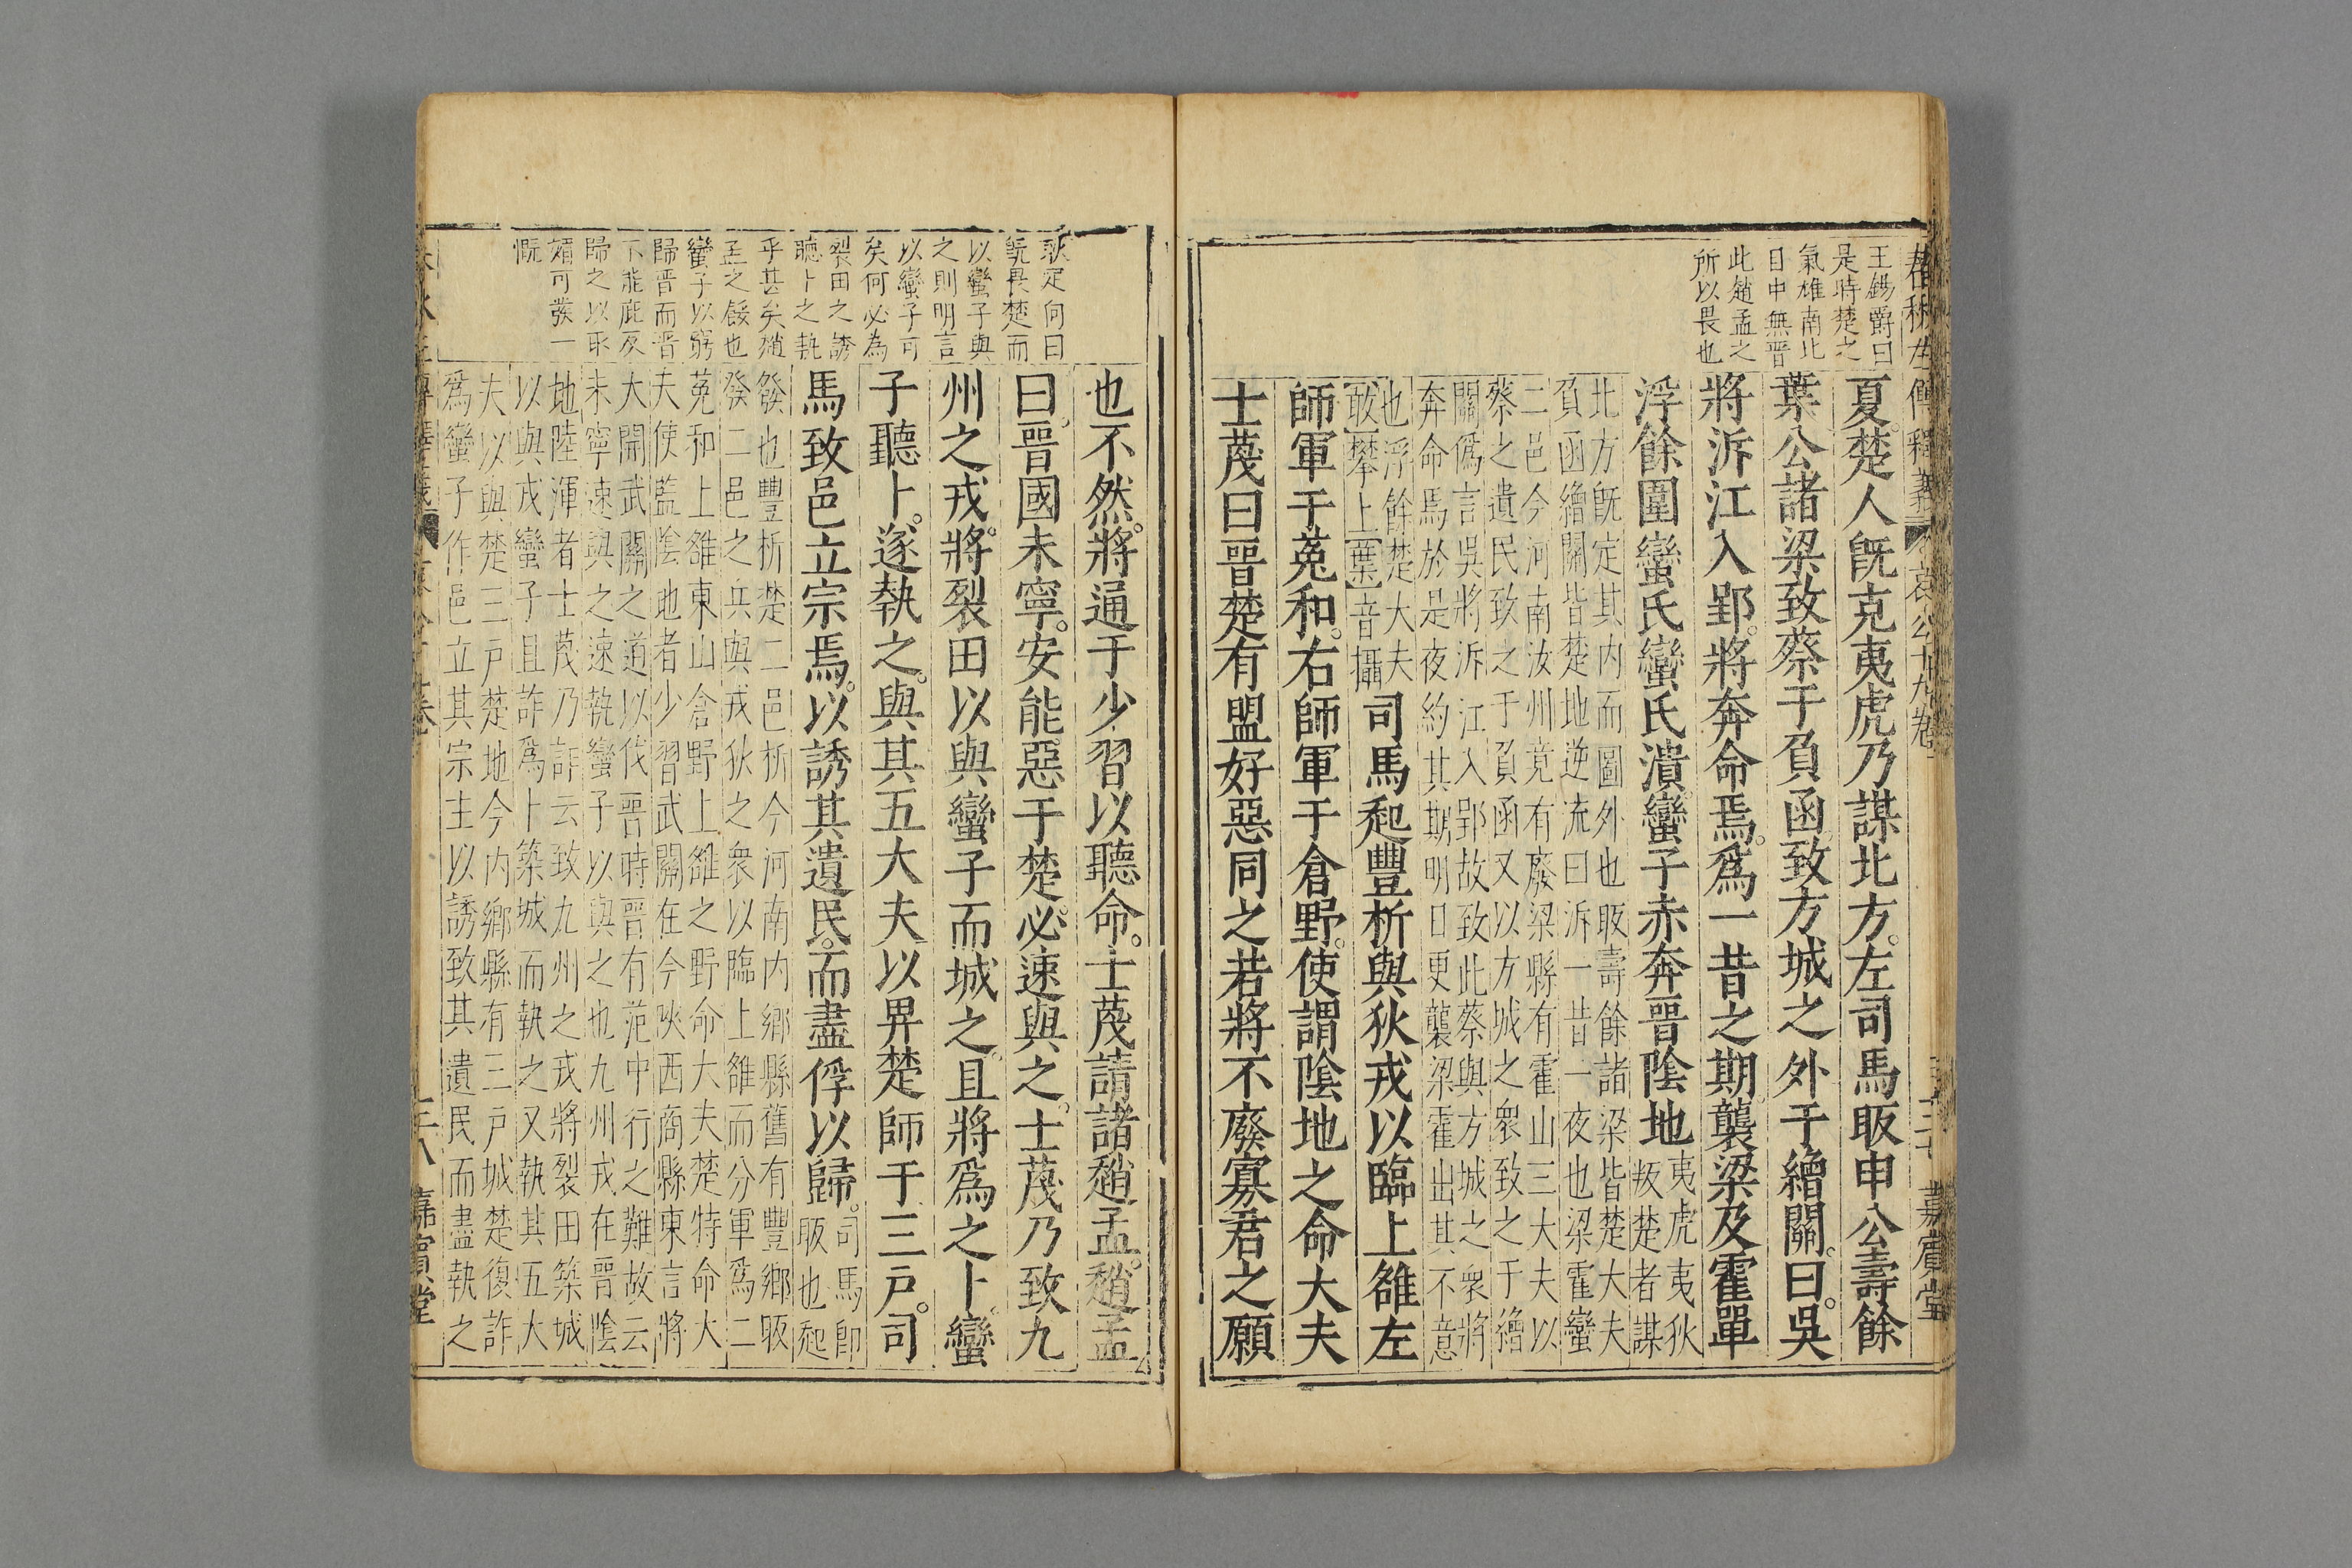 王錫爵曰
是時楚之
氣雄南北
日中無晉
此趙孟之
所以畏也
夏。楚人旣克夷虎乃謀北方。左司馬眅申公壽餘
葉公諸梁致蔡于負函。致方城之外于繒關。曰。吳
將泝江入郢。將奔命焉。爲一昔之期襲梁及霍單
浮餘圍蠻氏蠻氏潰。蠻子赤奔晉陰地
夷虎夷狄
叛楚者謀
北方旣定其内而圖外也眅壽餘諸梁皆楚大夫
負函繒關皆楚地逆流曰泝一昔一夜也梁霍蠻
二邑今河南汝州竟有廢梁縣有霍山三大夫以
蔡之遺民致之于負函又以方城之衆致之于繒
關僞言吳將泝江入郢故致此蔡與方城之衆將
奔命焉於是夜約其期明日更襲梁霍出其不意
也浮餘楚大夫
敢攀上葉音攝
司馬起豐析與狄戎以臨上雒左
師軍于菟和。右師軍于倉野。使謂陰地之命大夫
士蔑曰晉楚有盟好惡同之若將不廢寡君之願
曰
旣畏楚而
以蠻子與
之則明言
以蠻子可
矣何必為
裂田之誘
聽卜之執
乎甚矣趙
孟之餒也
蠻子以窮
歸晉而晉
不能庇反
歸之以
可發一
慨
也不然。將通于少習以聽命。士蔑請諸趙孟。趙孟
曰。晉國未寧。安能惡于楚。必速與之。士蔑乃致九
州之戎。將裂田以與蠻子而城之。且將爲之卜。蠻
子聽卜。遂執之。與其五大夫以畀楚師于三戸。司
馬致邑立宗焉。以誘其遺民。而盡俘以歸。
司馬卽
眅也起
發也豐析楚二邑析今河南内鄉縣舊有豐鄉眅
發二邑之兵與戎狄之衆以臨上雒而分軍爲二
菟和上雒東山倉野上雒之野命大夫楚特命大
夫使監陰地者少習武關在今陝西商縣東言將
大開武關之道以伐晉時晉有范中行之難故云
未寧速與之速執蠻子以與之也九州戎在晉陰
地陸渾者士蔑乃詐云致九州之戎將裂田築城
以與戎蠻子且詐爲卜築城而執之又執其五大
夫以與楚三戸楚地今内鄉縣有三戸城楚復詐
爲蠻子作邑立其宗主以誘致其遺民而盡執之